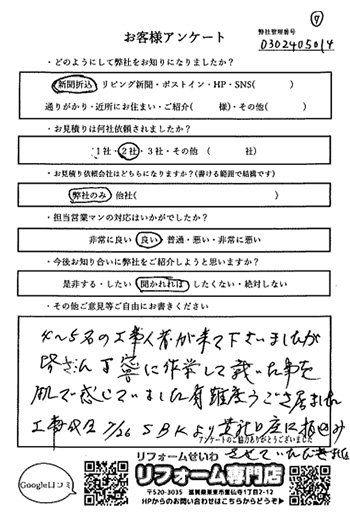 ⑦
お客様アンケート
弊社管理番号
0302405014
・どのようにして弊社をお知りになりましたか?
新聞折込 リビング新聞・ポストイン・HP・SNS( )
通りがかり・近所にお住まい・ご紹介( 様)・その他( )
・お見積りは何社依頼されましたか?
1社・2社・3社・その他 ( 社)
・お見積り依頼会社はどちらになりますか?(書ける範囲で結構です)
弊社のみ 他社( )
・担当営業マンの対応はいかがでしたか?
非常に良い 良い 普通・悪い・非常に悪い
・今後お知り合いに弊社をご紹介しようと思いますか?
是非する・したい 聞かれれば したくない・絶対しない
・その他ご意見等ご自由にお書きください
4〜5名の工事人者が来て下さいましたが
皆さん丁寧に作業して戴いた事を
肌で感じていました有難度うござ居ました
工事代金 7/26 SBKより 口座に振込み
アンケートのご協力ありがとうございました
させていただきました
Google口コミ
リフォームせいわ
リフォーム専門店
〒520-3035 滋賀県栗東市霊仙寺1丁目2-12
HPからのお問い合わせはこちらからどうぞ